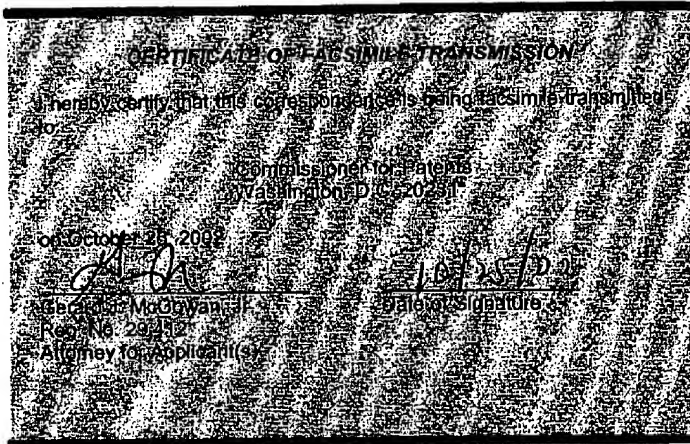 CERTIFICATE OF FACSIMILE TRANSMISSION
I hereby certify that this correspondence is being facsimile transmitted
to:
Commissioner for Patents
Washington, D.C. 20231
on October 25, 2002
10/25/02
Gerard J. McGowan, Jr.
Date of Signature
Reg. No. 29,412
Attorney for Applicant(s)